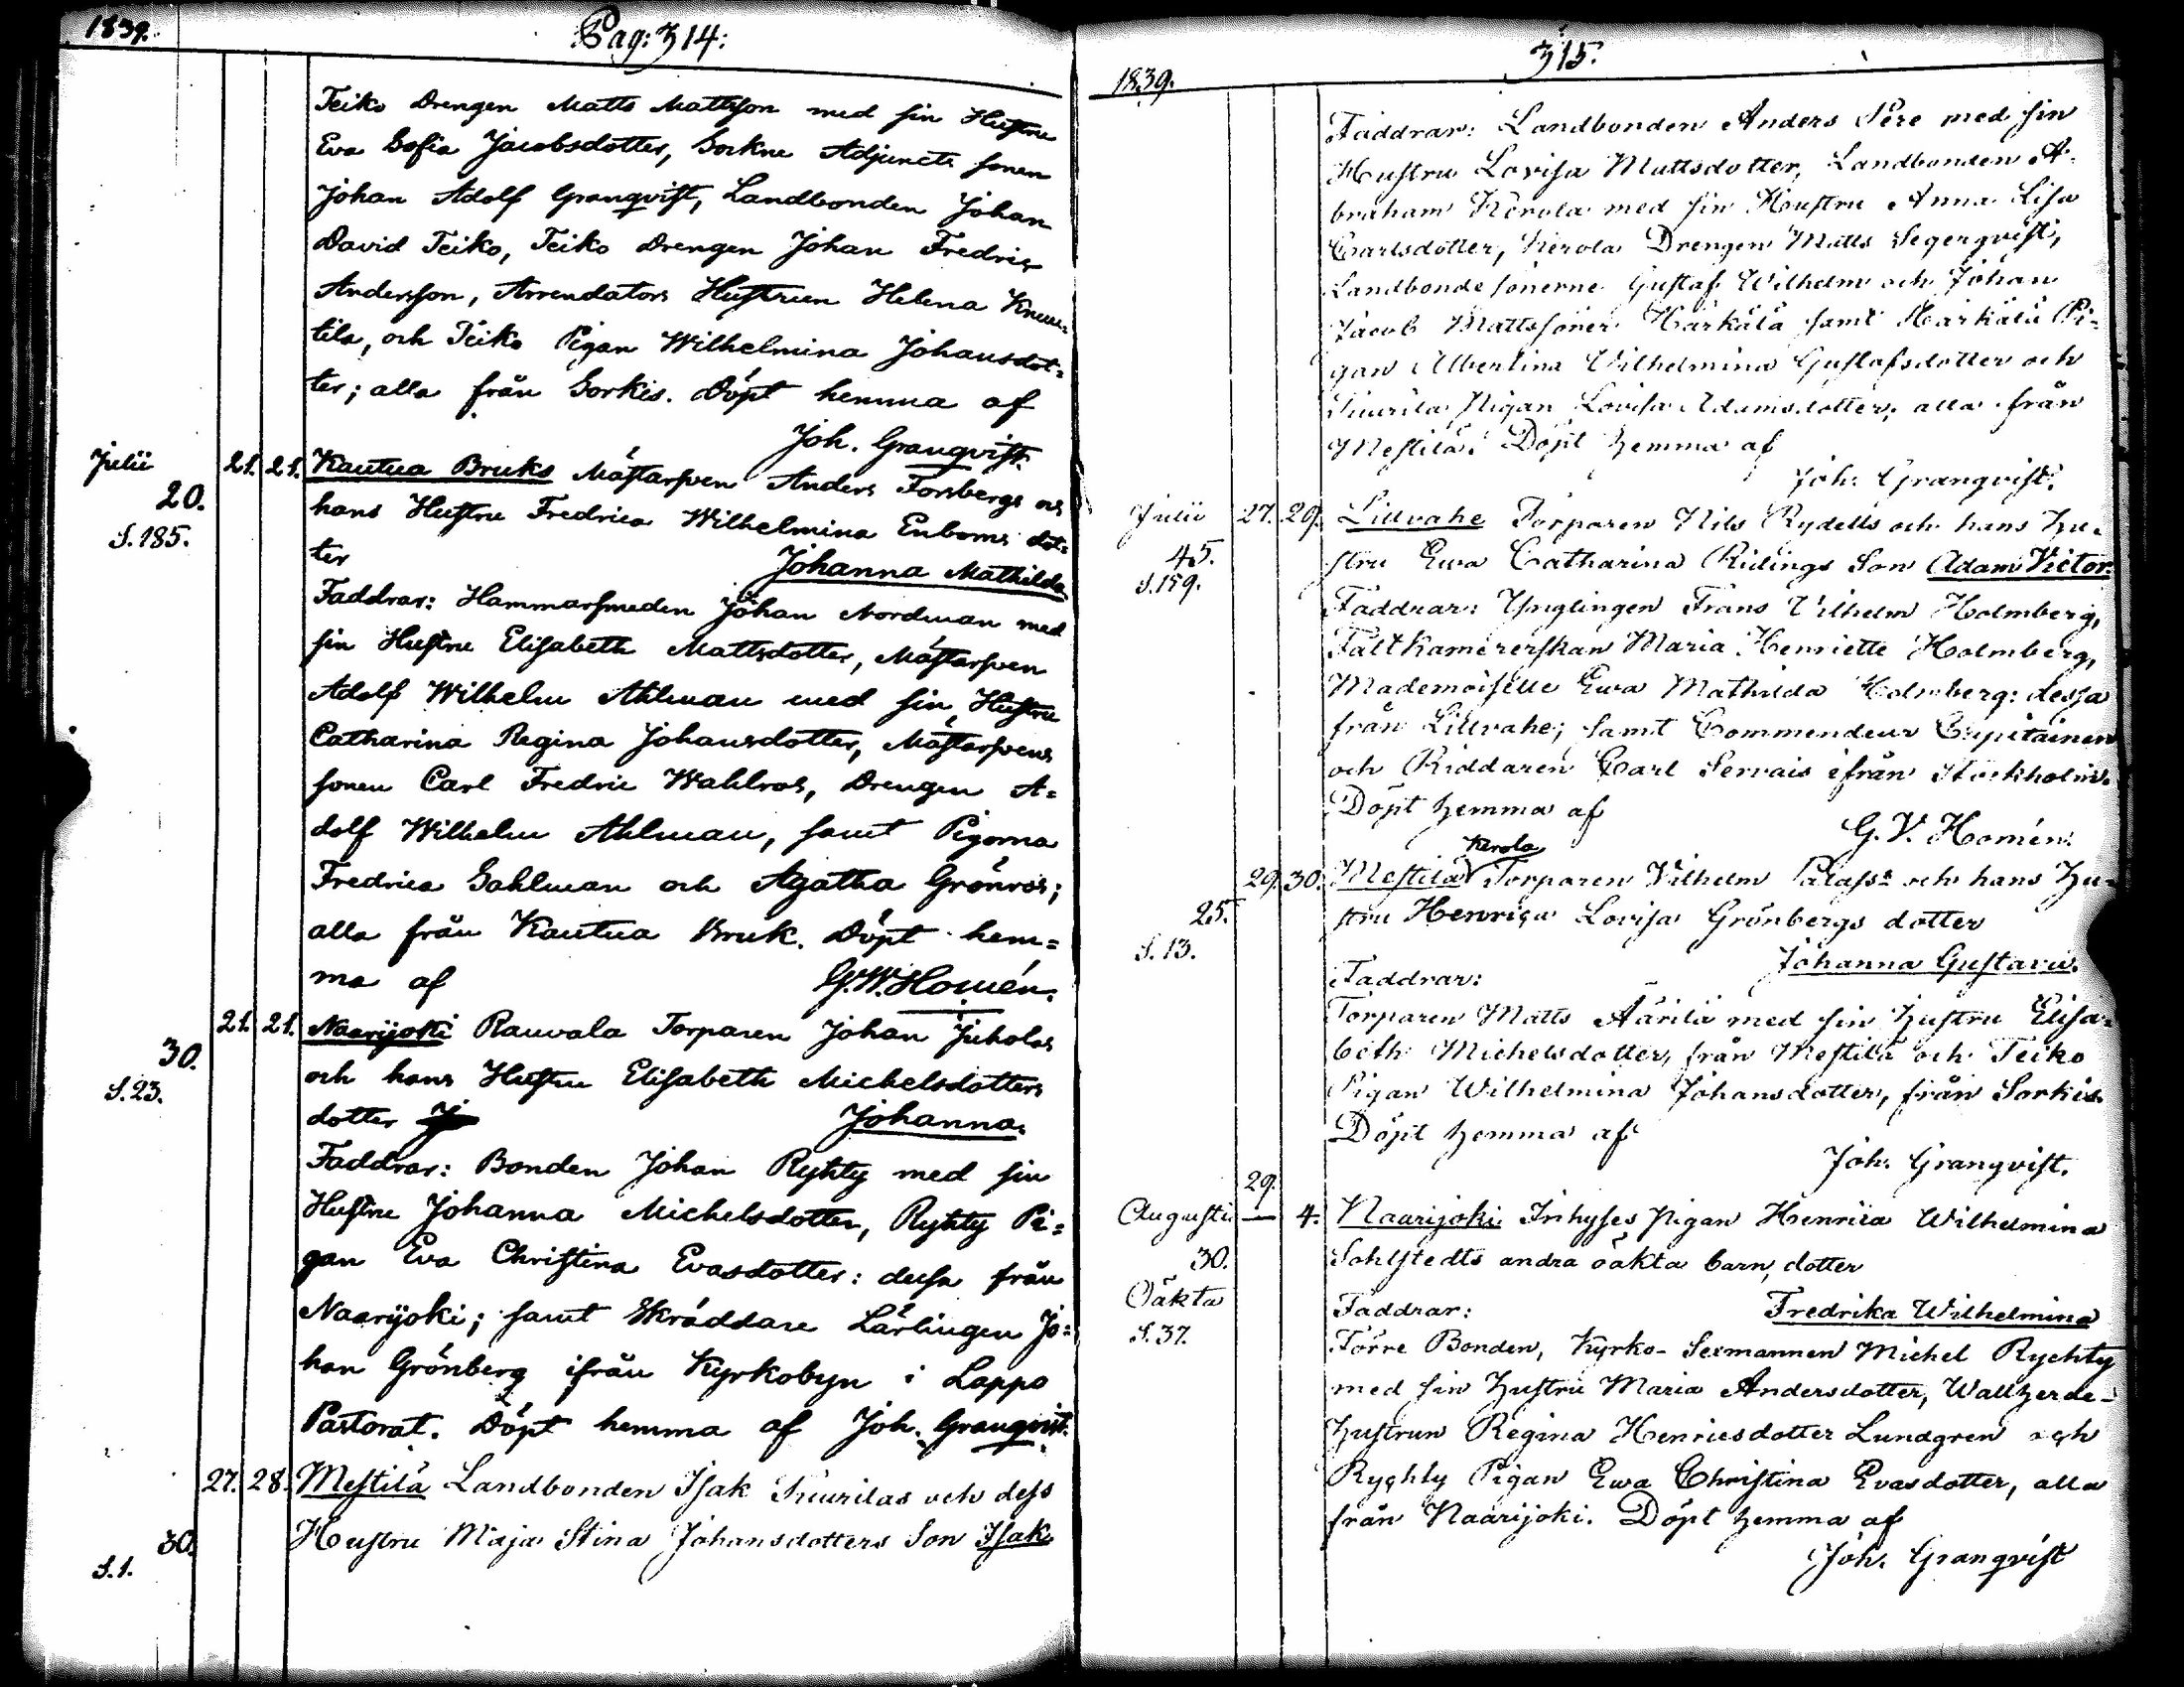 1839.
Pag: 314:
Teiko Drengen Matts Mattsson med sin Hustru
Eva Sofia Jacobsdotter, Sockne Adjuncts sonen
Johan Adolf Granqvist, Landbonden Johan
David Teiko, Teiko Drengen Johan Fredric
Andersson, Arrendators Hustrun Helena Knuu=
tila, och Teiko Pigan Wilhelmina Johansdot=
ter; alla från Sorkis. Döpt hemma af
Joh. Granqvist.
Julii 21. 21. Kautua Bruks Mästarsven Anders Forsbergs och
20. hans Hustru Fredrica Wilhelmina Enboms dot=
S. 185. ter Johanna Mathilda
Faddrar: Hammarsmeden Johan Nordman med
sin Hustru Elisabeth Mattsdotter, Mästarsven
Adolf Wilhelm Ahlman med sin Hustru
Catharina Regina Johansdotter, Mästarsvens
sonen Carl Fredric Wahlros, Drengen A=
dolf Wilhelm Ahlman, samt Pigorna
Fredrica Sahlman och Agatha Grönros;
alla från Kautua Bruk. Döpt hem=
ma af G.W. Homén.
21. 21. Naarijoki Rauvala Torparen Johan Juholas
30. och hans Hustru Elisabeth Michelsdotters
S. 23. dotter J Johanna.
Faddrar: Bonden Johan Ryhty med sin
Hustru Johanna Michelsdotter, Ryhty Pi=
gan Eva Christina Evasdotter: dessa från
Naarijoki; samt Skräddare Lärlingen Jo=
han Grönberg ifrån Kyrkobyn i Lappo
Pastorat. Döpt hemma af Joh. Granqvist.
27. 28. Mestilä Landbonden Isak Suurilas och dess
30. Hustru Maja Stina Johansdotters Son Isak
S. 1.
315.
1839.
Faddrar: Landbonden Anders Pere med sin
Hustru Lovisa Mattsdotter, Landbonden A=
braham Kerola med sin Hustru Anna Lisa
Carlsdotter, Kerola Drengen Matts Segerqvist,
Landbonde sönerne Gustaf Wilhelm och Johan
Jacob Mattssöner Härkälä samt Härkälä Pi=
gan Albertina Wilhelmina Gustafsdotter och
Suurila Pigan Lovisa Adamsdotter, alla från
Mestilä. Döpt hemma af
Joh. Granqvist.
Julii 27. 29. Lillvahe Torparen Nils Rydells och hans Hu-
45. stru Ewa Catharina Ridings Son Adam Victor.
S. 159. Faddrar: Ynglingen Frans Vilhelm Holmberg,
Fältkamererskan Maria Henriette Holmberg,
Mademoiselle Ewa Mathilda Holmberg: dessa
från Lillvahe; samt Commendeur Capitainen
och Riddaren Carl Servais ifrån Stockholm.
Döpt hemma af
G. V. Homén.
Kerola
29. 30. Mestilä Torparen Vilhelm Palass och hans Hu-
25. stru Henrica Lovisa Grönbergs dotter
S. 13. Johanna Gustava.
Faddrar:
Torparen Matts Äärilä med sin Hustru Elisa=
beth Michelsdotter, från Mestilä och Teiko
Pigan Wilhelmina Johansdotter, från Sorkis.
Döpt hemma af
Joh. Granqvist.
29.
Augusti — 4. Naarijoki Inhyses pigan Henrica Wilhelmina
30. Sohlstedts andra oäkta barn, dotter
Oäkta Faddrar: Fredrika Wilhelmina
S. 37. Förre Bonden, Kyrko-Sexmannen Michel Rychty
med sin Hustru Maria Andersdotter, Wallherde-
hustrun Regina Henricsdotter Lundgren och
Rychty Pigan Ewa Christina Evasdotter, alla
från Naarijoki. Döpt hemma af
Joh. Granqvist